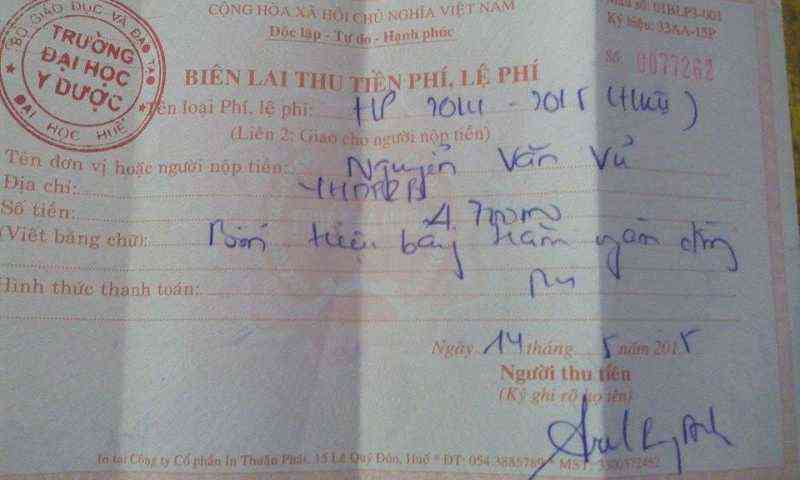 CỘNG HÒA XÃ HỘI CHỦ NGHĨA VIỆT NAM
Độc lập - Tự do - Hạnh phúc
Mẫu số: 01BLP3-001
Ký hiệu: 33AA-15P
Số 0077262
BỘ GIÁO DỤC VÀ ĐÀO TẠO
TRƯỜNG
ĐẠI HỌC
Y DƯỢC
ĐẠI HỌC HUẾ
BIÊN LAI THU TIỀN PHÍ, LỆ PHÍ
Tên loại Phí, lệ phí: HP 2014 - 2015 (HKII)
(Liên 2: Giao cho người nộp tiền)
Tên đơn vị hoặc người nộp tiền: Nguyễn Văn Vủ
Địa chỉ:
Số tiền: 4.700.000
(Viết bằng chữ): Bốn triệu bảy trăm ngàn đồng
Hình thức thanh toán:
Ngày 14 tháng 5 năm 2015
Người thu tiền
(Ký ghi rõ họ tên)
In tại Công ty Cổ phần In Thuận Phát, 15 Lê Quý Đôn, Huế * ĐT: 054.3885789 * MST: 3300572452